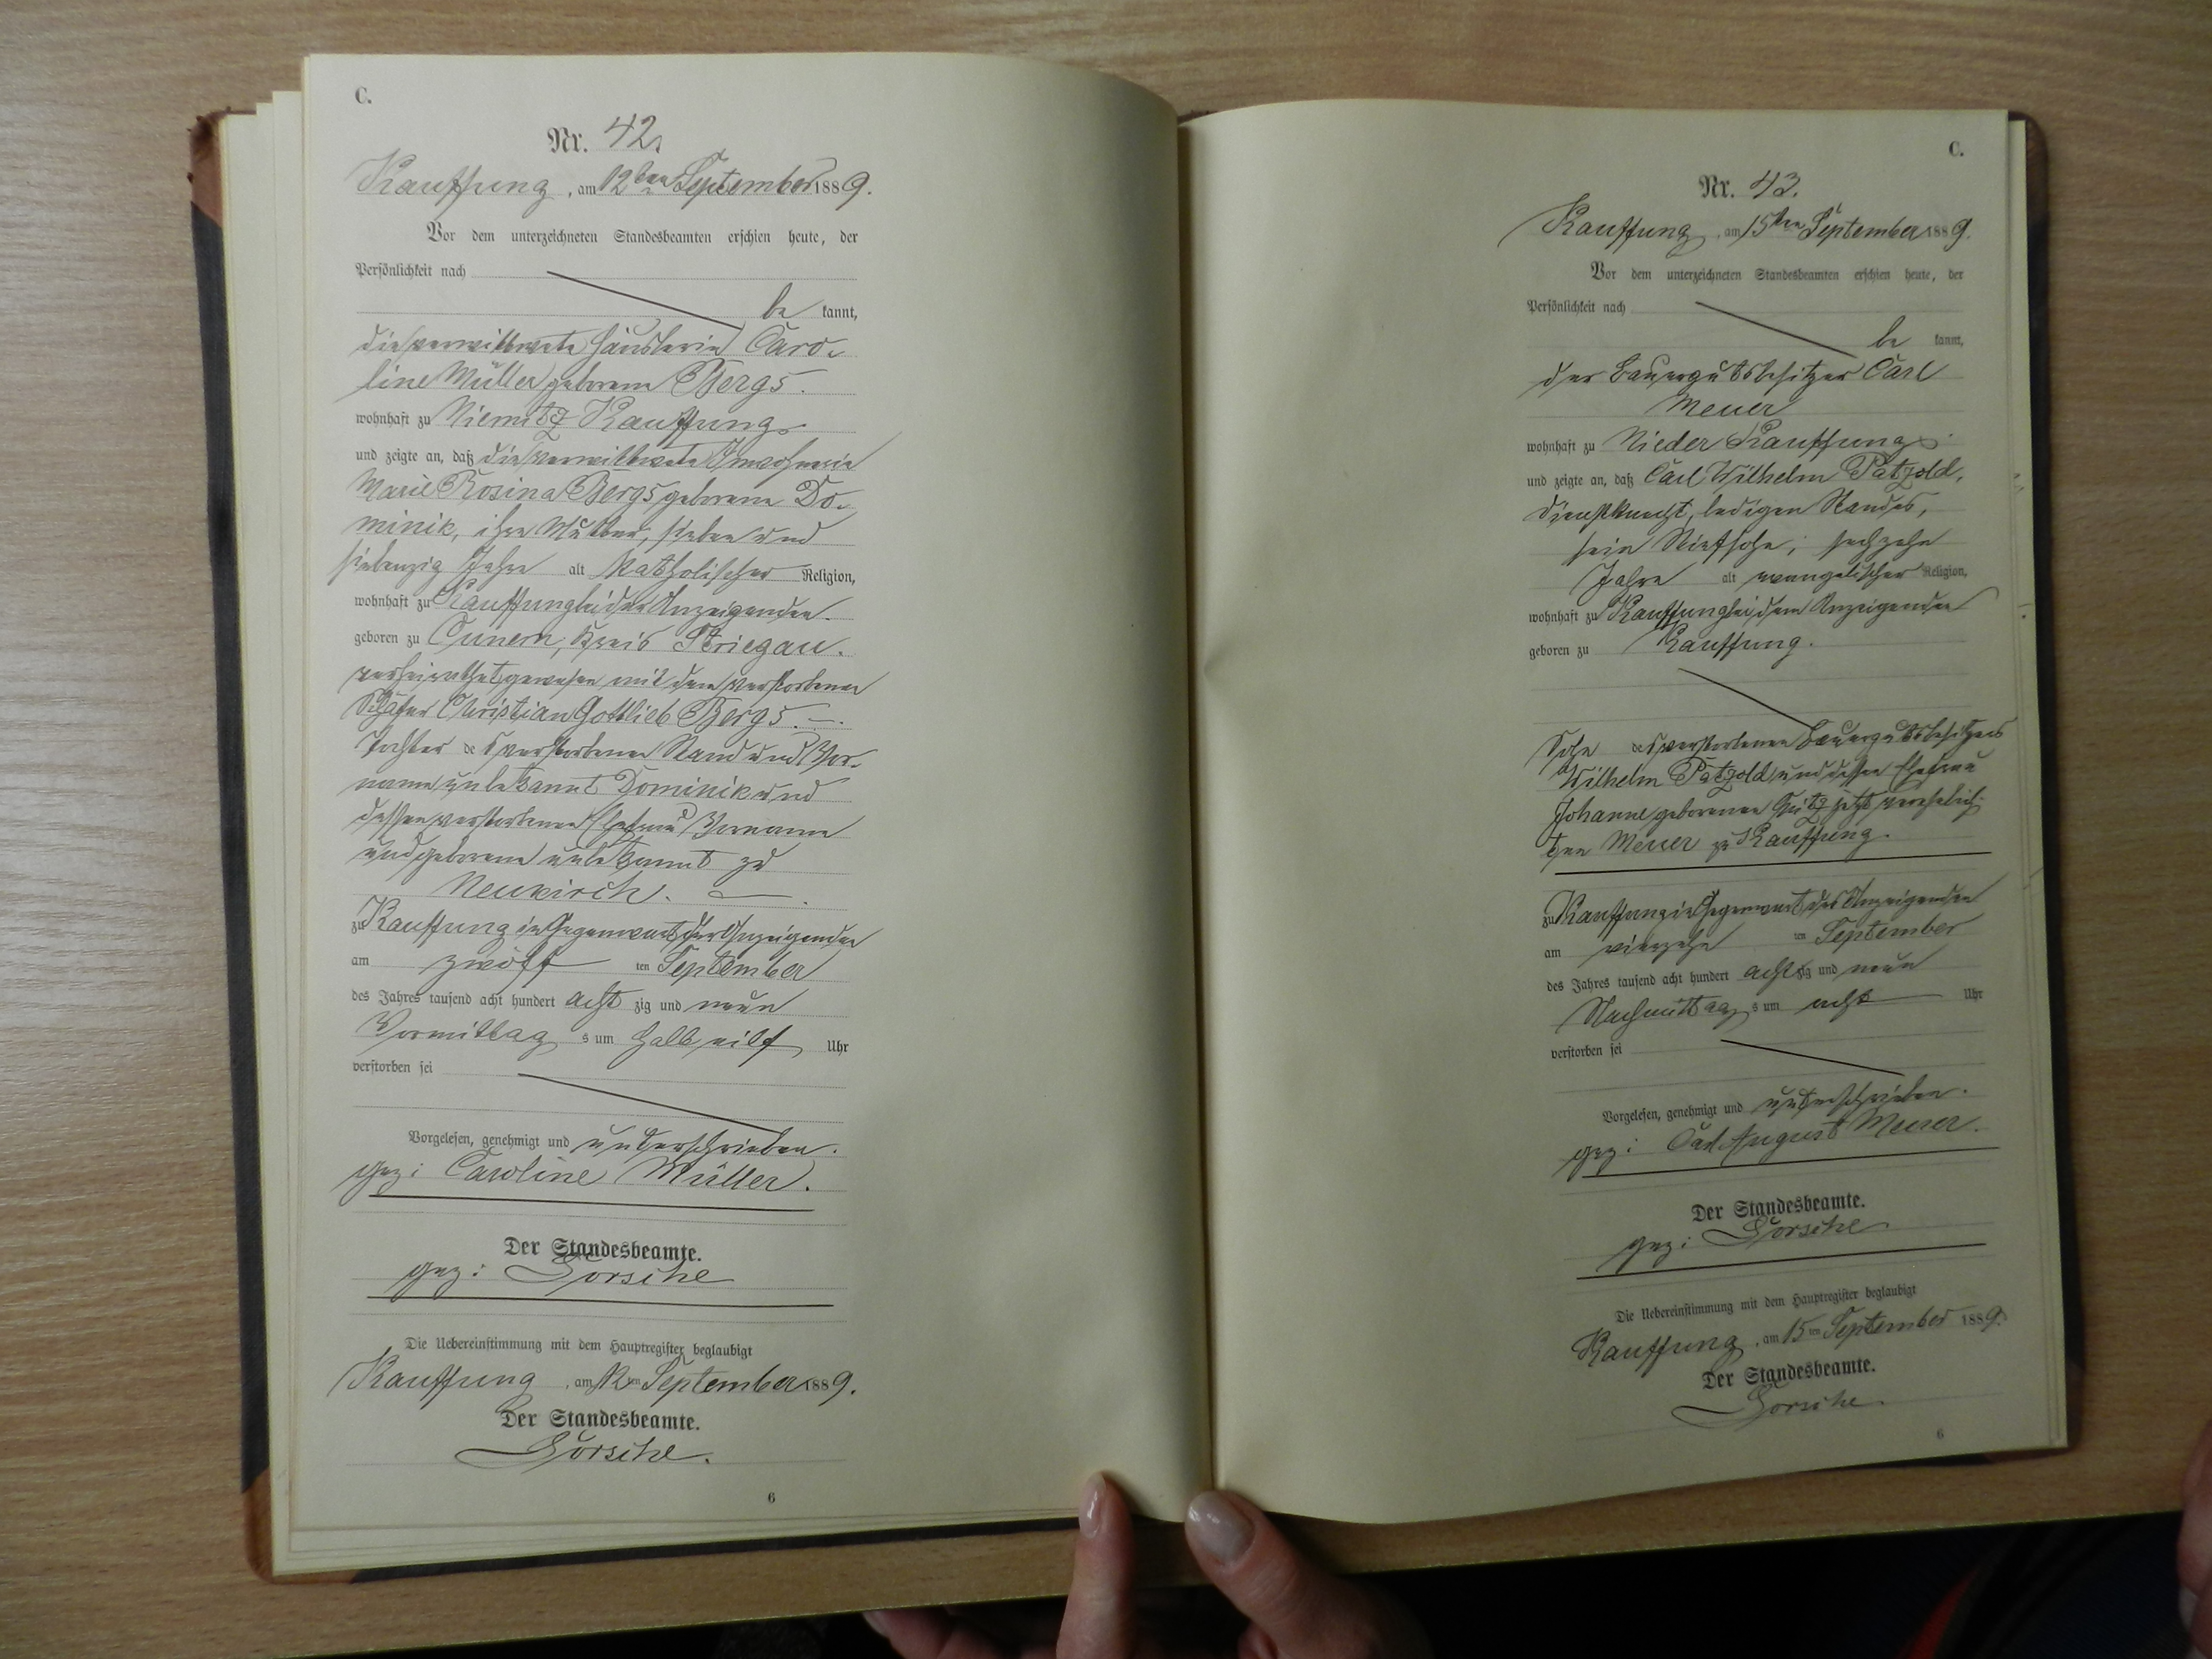 C.
Nr. 42.
Kauffung, am 12ten September 1889.
Vor dem unterzeichneten Standesbeamten erschien heute, der
Persönlichkeit nach
be kannt,
die verwittwete Häuslerin Caro-
line Müller geborene Bergs.
wohnhaft zu Niemitz Kauffung
und zeigte an, daß die verwittwete Inwohnerin
Marie Rosina Bergs geborene Do-
minik, ihre Mutter, sieben und
siebenzig Jahre alt katholischer Religion,
wohnhaft zu Kauffung bei der Anzeigenden.
geboren zu Cunern, Kreis Striegau.
verheirathet gewesen mit dem verstorbenen
Schäfer Christian Gottlieb Bergs.
Tochter des verstorbenen Stand und Vor-
name unbekannt Dominik und
dessen verstorbenen Ehefrau Vorname
und geborene unbekannt zu
Neukirch.
zu Kauffung in Gegenwart der Anzeigenden
am zwölf ten September
des Jahres tausend acht hundert acht zig und neun
Vormittag s um halb eilf Uhr
verstorben sei
Vorgelesen, genehmigt und unterschrieben.
gez: Caroline Müller.
Der Standesbeamte.
gez: Gorsche
Die Uebereinstimmung mit dem Hauptregister beglaubigt
Kauffung, am 12ten September 1889.
Der Standesbeamte.
Gorsche.
6
C.
Nr. 43.
Kauffung, am 15ten September 1889.
Vor dem unterzeichneten Standesbeamten erschien heute, der
Persönlichkeit nach
be kannt,
der Bauergutsbesitzer Carl
Meuer
wohnhaft zu Nieder Kauffung
und zeigte an, daß Carl Wilhelm Pätzold,
Dienstknecht, ledigen Standes,
sein Stiefsohn, sechzehn
Jahre alt evangelischer Religion,
wohnhaft zu Kauffung bei dem Anzeigenden
geboren zu Kauffung.
Sohn des verstorbenen Bauergutsbesitzers
Wilhelm Pätzold und dessen Ehefrau
Johanne geborenen jetzt verehelich-
ten Meuer zu Kauffung.
zu Kauffung in Gegenwart des Anzeigenden
am vierzehn ten September
des Jahres tausend acht hundert achtzig und neun
Nachmittag s um acht Uhr
verstorben sei
Vorgelesen, genehmigt und unterschrieben.
gez: Carl August Meuer.
Der Standesbeamte.
gez: Gorsche
Die Uebereinstimmung mit dem Hauptregister beglaubigt
Kauffung, am 15ten September 1889.
Der Standesbeamte.
Gorsche.
6